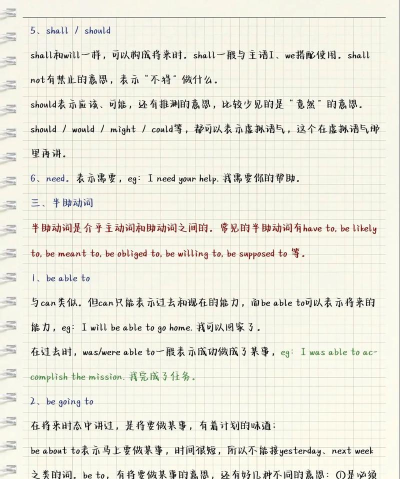 5、shall / should
shall和will一样，可以构成将来时。shall一般与主语I、we搭配使用。shall
not有禁止的意思，表示“不得”做什么。
should表示应该、可能，还有推测的意思，比较少见的是“竟然”的意思。
should / would / might / could等，都可以表示虚拟语气，这个在虚拟语气那
里再讲。
6、need。表示需要，eg：I need your help. 我需要你的帮助。
三、半助动词
半助动词是介乎主动词和助动词之间的。常见的半助动词有have to, be likely
to, be meant to, be obliged to, be willing to, be supposed to 等。
1、be able to
与can类似。但can只能表示过去和现在的能力，而be able to可以表示将来的
能力，eg：I will be able to go home. 我可以回家了。
在过去时，was/were able to一般表示成功做成了某事，eg：I was able to ac-
complish the mission. 我完成了任务。
2、be going to
在将来时态中讲过，是将要做某事，有着计划的味道；
be about to表示马上要做某事，时间很短，所以不能接yesterday、next week
之类的词。be to，有将要做某事的意思，还有好几种不同的意思：①是必须